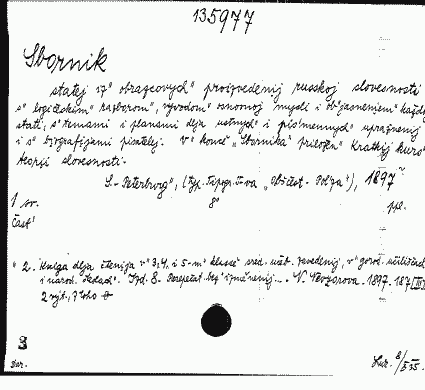 135977
Sbornik
statej iz" obrazcovych" proizvedenij russkoj slovesnosti
s" logičeskim" razborom", vyvodom" osnovnoj mysli i ob"jasneniem" každoj
stat'i, s" temami i planami dlja ustnych" i pis'mennych" upražnenij
i s" biografijami pisatelej. V" koncě "Sbornika" priložen" kratkij kurs"
teorii slovesnosti.
S.-Peterburg", (typ. Tipogr. T-va "Obščest. Pol'za"), 1897
1 sv. 8° ppl.
Čast'
2. Kniga dlja čtenija v" 3, 4 i 5-m" klassě sred. učeb. zavedenij, v" gorod. učiliščach"
i narod. Izd. 8. bez" izměnenij. N. Nevzorova. 1897. 187
2 výt.,
8
Dar.